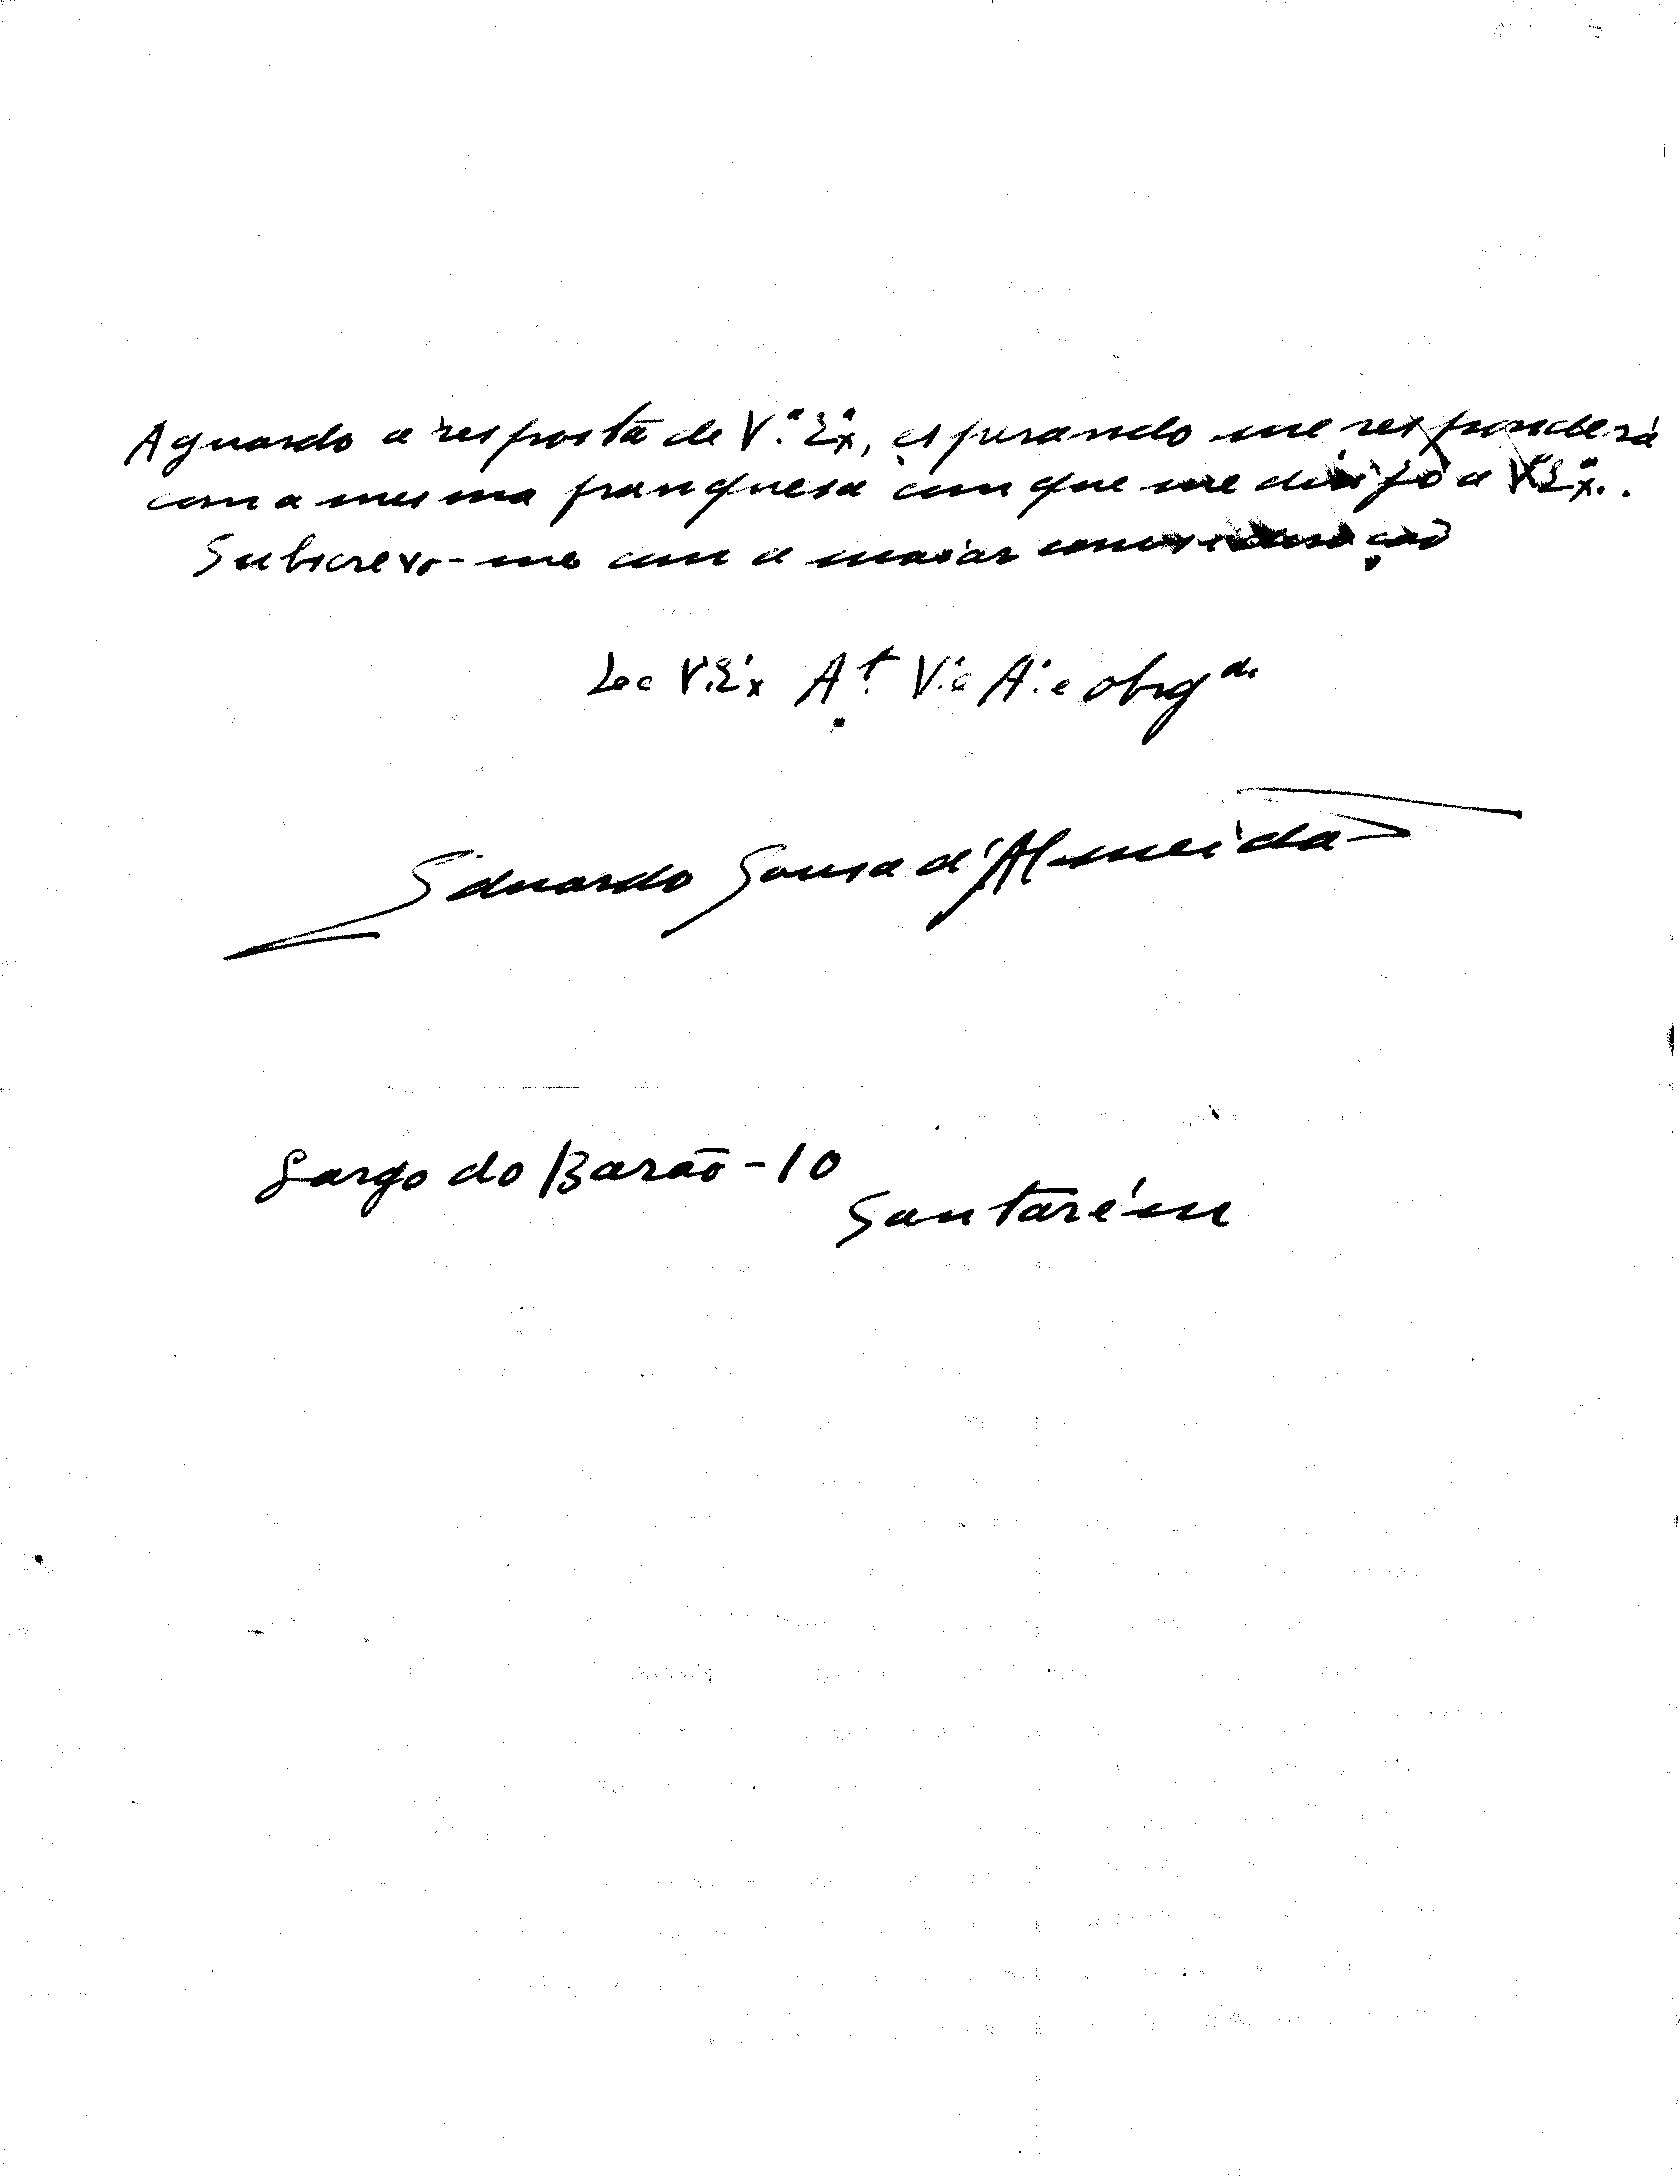 Aguardo a resposta de V.ª Ex.ª, esperando me responderá
com a mesma franquesa com que me dirijo a V.ª Ex.ª.
Subscrevo-me com a maior consideração
De V. Ex.ª At.º V.or A.º e obrg.do
Eduardo Sousa d'Almeida
Largo do Barão - 10
Santarém